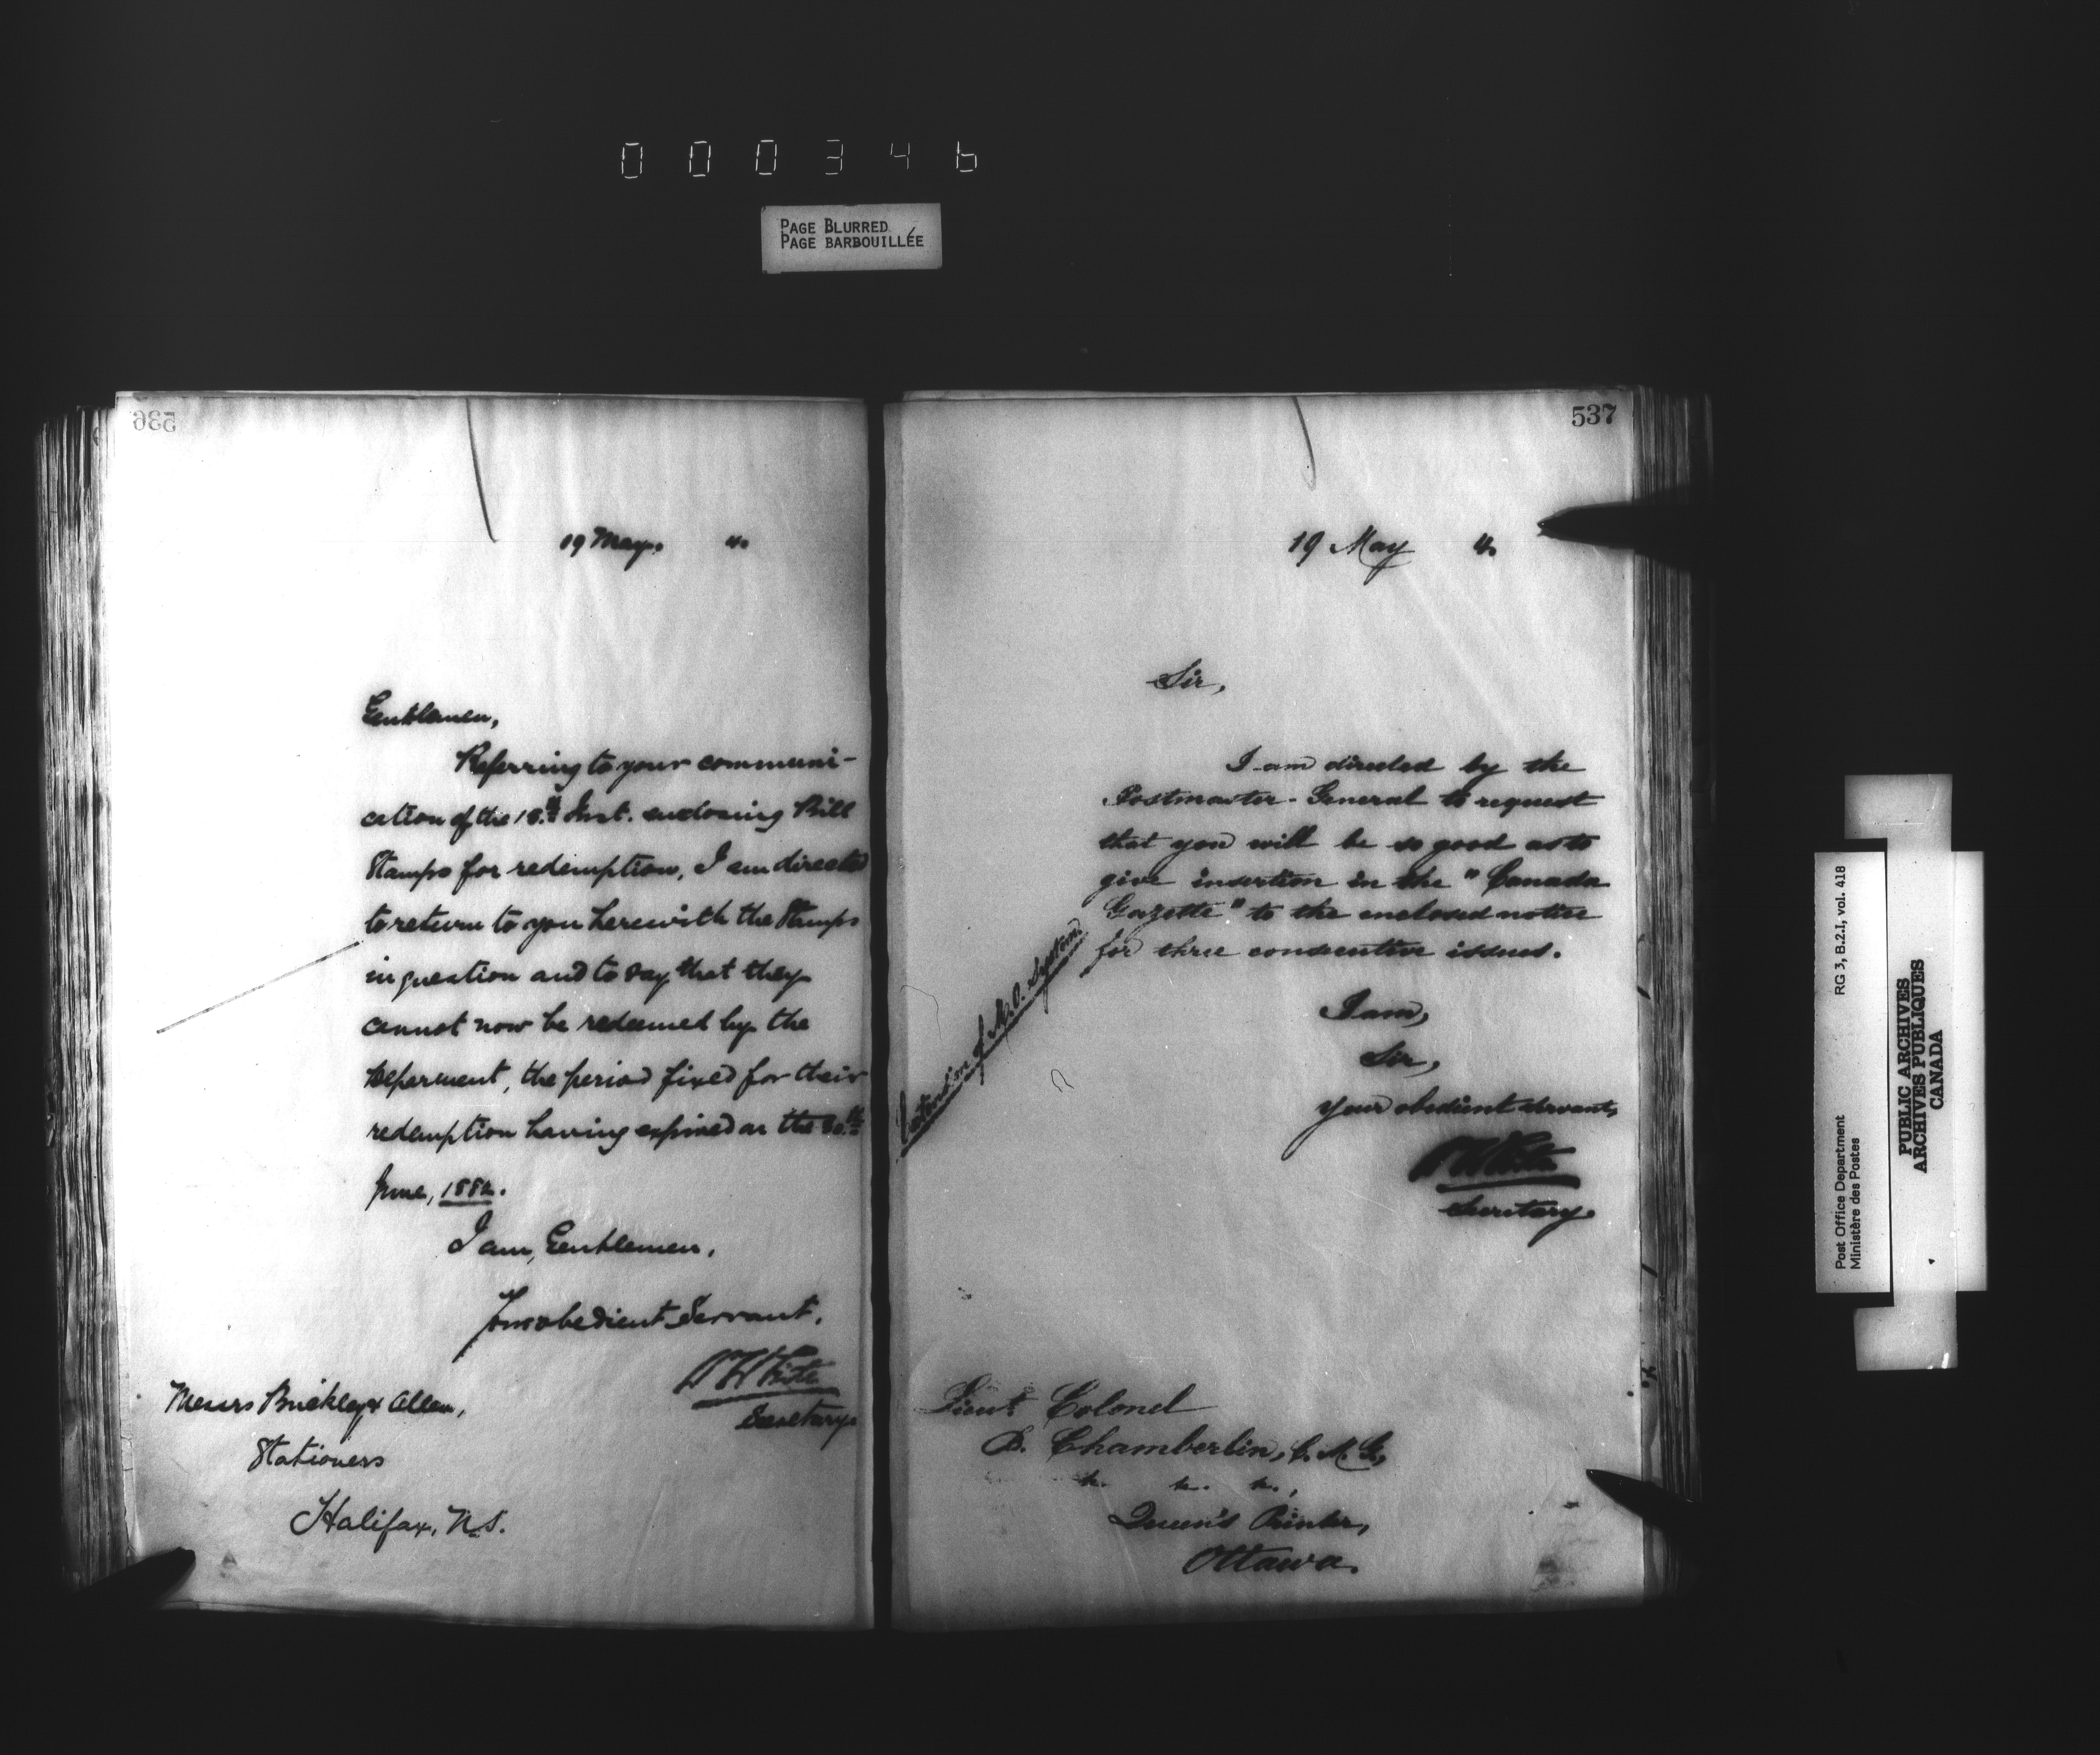 000346
PAGE BLURRED
PAGE BARBOUILLÉE
536
19 May. 4.
Gentlemen,
Referring to your communi-
cation of the 18.th Inst. enclosing Bill
Stamps for redemption, I am directed
to return to you herewith the Stamps
in question and to say that they
cannot now be redeemed by the
Deparment, the period fixed for their
redemption having expired on the 30.th
June, 1882.
I am, Gentlemen,
Your obedient Servant,
W White
Secretary.
Messrs Buckley & Allen,
Stationers
Halifax, N.S.
537
19 May 4.
Sir,
I am directed by the
Postmaster-General to request
that you will be so good as to
give insertion in the "Canada
Gazette" to the enclosed notice
for three consecutive issues.
Extension of M.O. System
I am,
Sir,
Your obedient servant,
W White
Secretary.
Lieut. Colonel
B. Chamberlin, C.M.G.,
&c. &c. &c.,
Queen's Printer,
Ottawa.
RG 3, B.2.I, vol. 418
Post Office Department
Ministère des Postes
PUBLIC ARCHIVES
ARCHIVES PUBLIQUES
CANADA